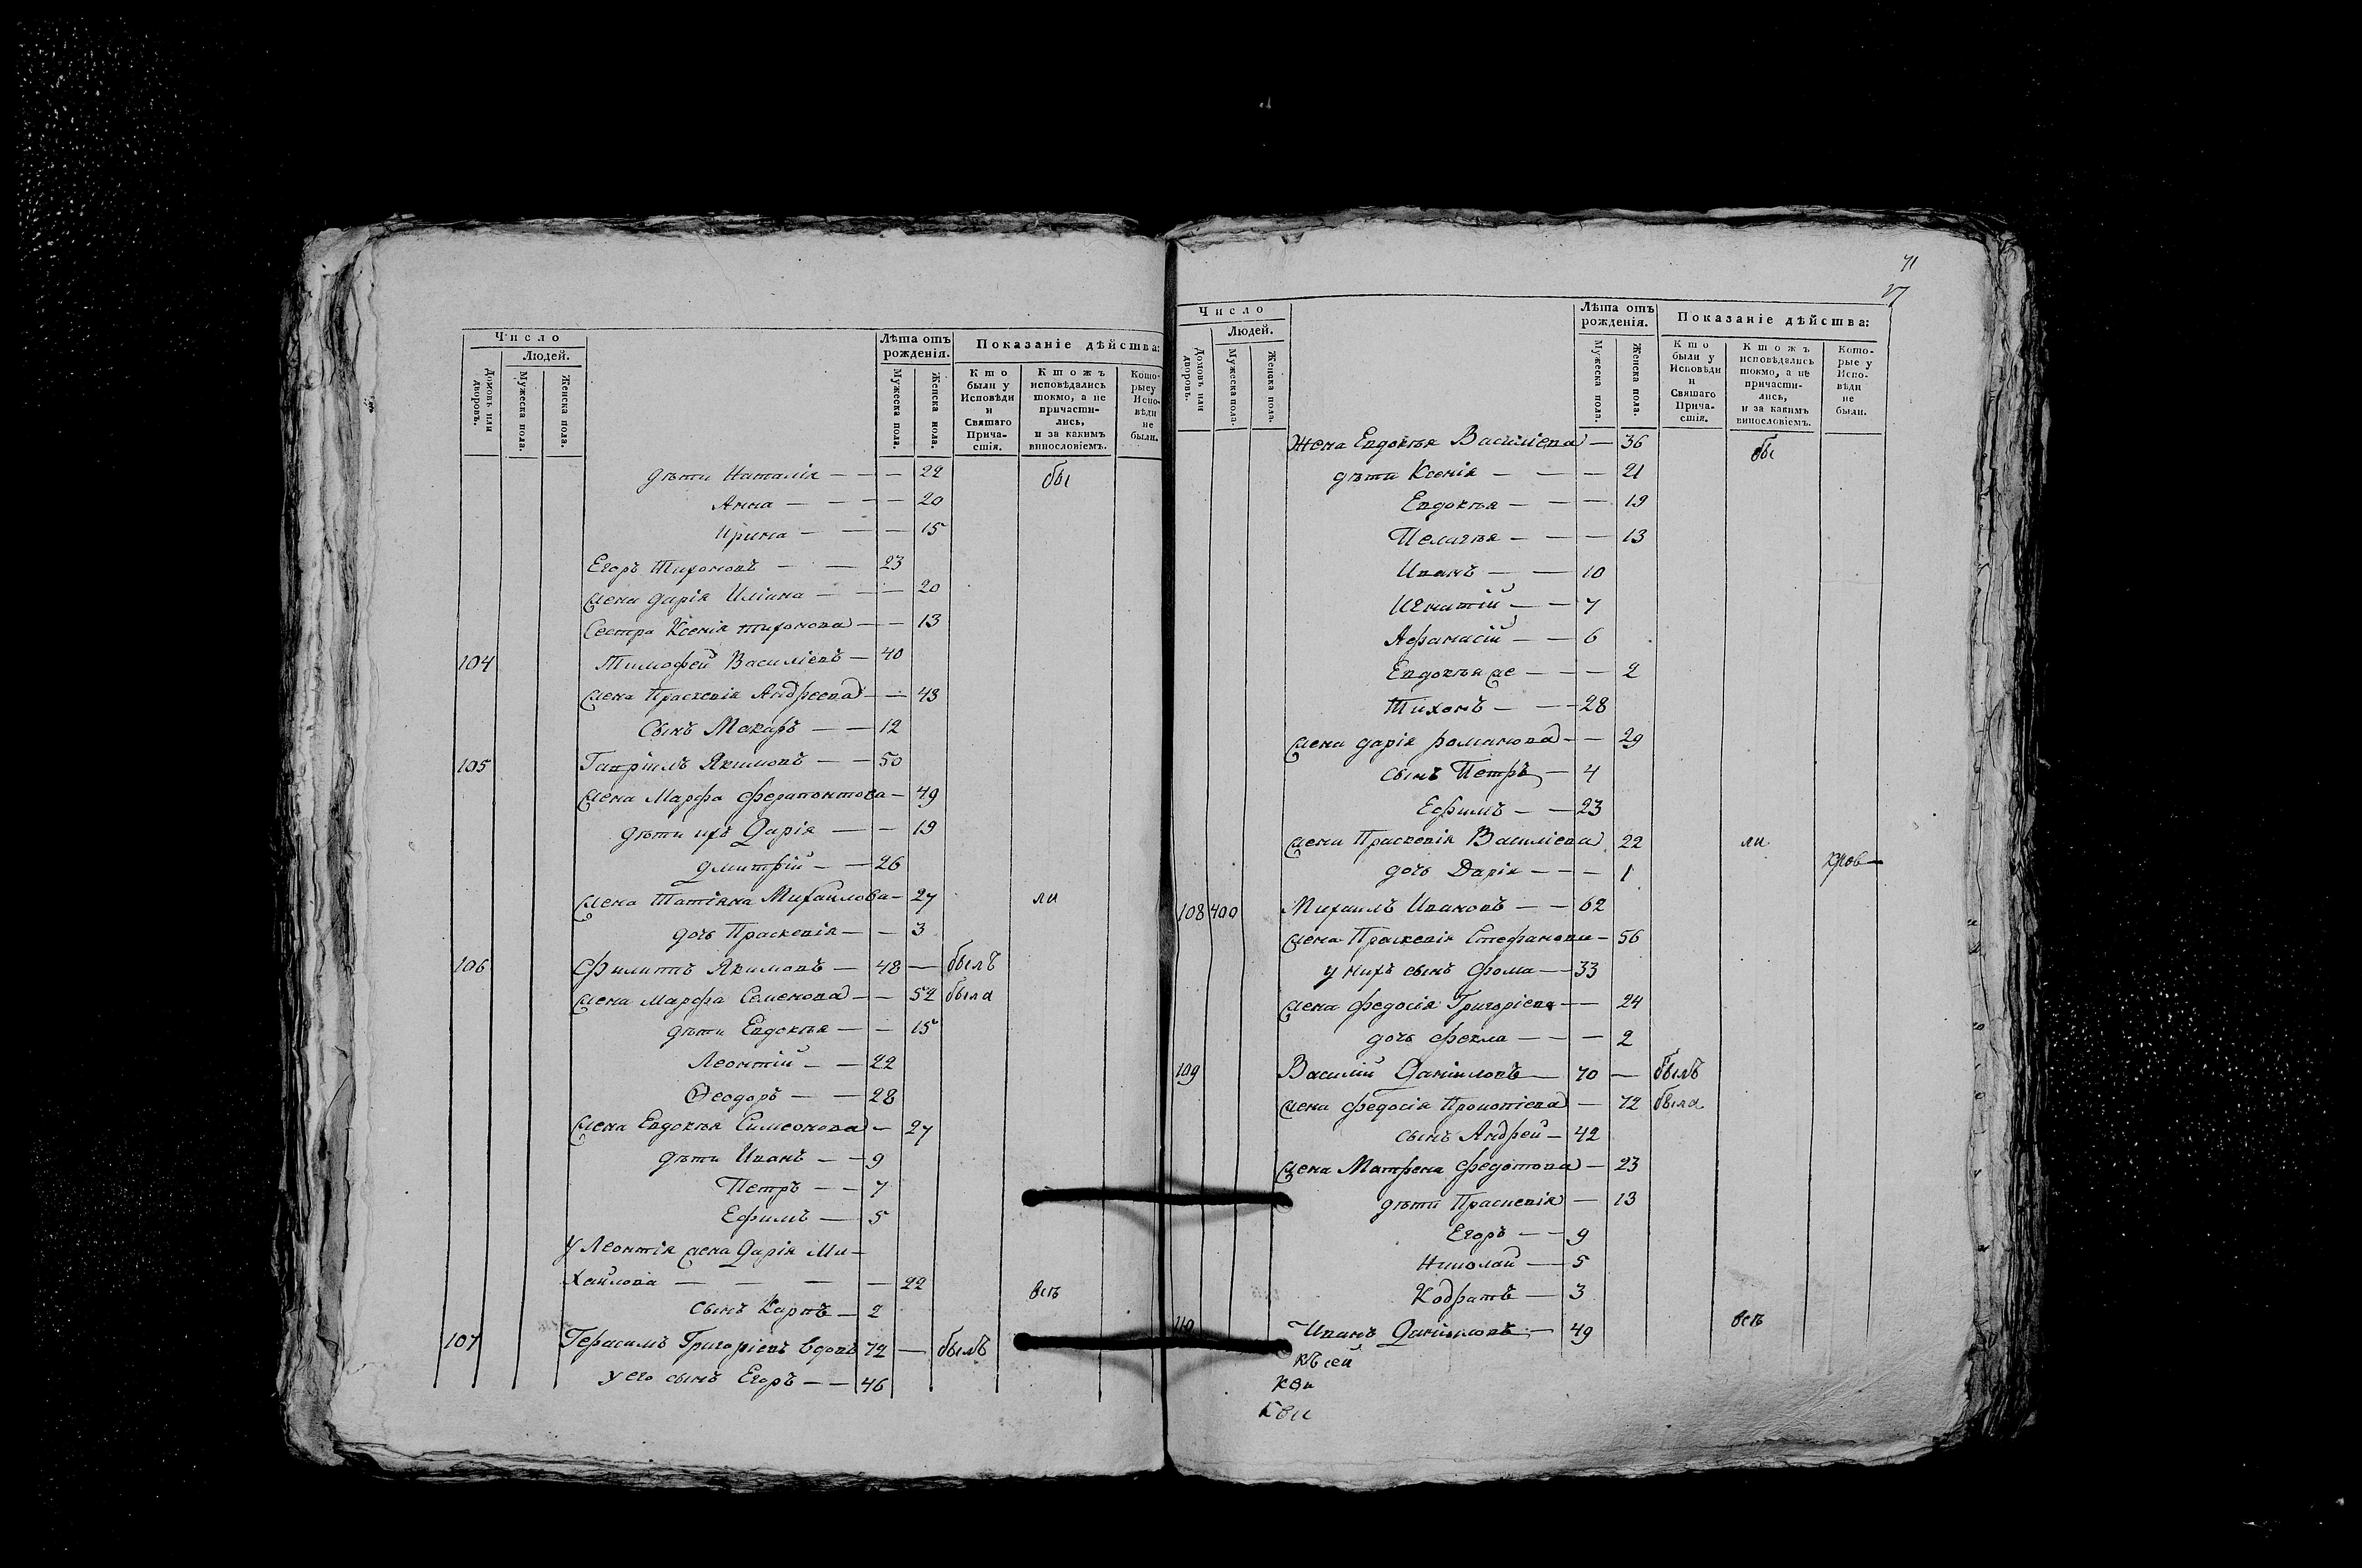 Число
Людей.
Домовъ или дворовъ.
Мужеска пола.
Женска пола.
Лѣта отъ рожденія.
Мужеска пола.
Женска пола.
Показаніе дѣйства:
Кто были у Исповѣди и Святаго Прича-стія.
Ктожъ исповѣдались токмо, а не причасти-лись, и за какимъ винословіемъ.
Кото-рые у Испо-вѣди не были.
дѣти Наталія — — — 22 бы
Анна — — — 20
Ирина — — — 15
Егоръ Тихоновъ — — 23
жена дарія Иліина — — — 20
Сестра Ксенія тихонова — — 13
104 Тимофей Василіевъ — 40
жена Праскевія Андреева — — 43
Сынъ Макаръ — — 12
105 Гавріилъ Якимовъ — — 50
жена Марфа Ферапонтова — 49
дѣти ихъ Дарія — — 19
Дмитрій — — 26
жена Татіана Михайлова — 27 ли
дочь Праскевія — — 3
106 Филиппъ Якимовъ — 48 — былъ
жена марфа Семенова — — 52 была
дѣти Евдокѣя — — 15
Леонтій — — 22
Ѳеодоръ — — 28
жена Евдокѣя Симеонова — 27
дѣти Иванъ — — 9
Петръ — — 7
Ефимъ — 5
У Леонтія жена Дарія Ми-
хайлова — — — — 22
сынъ Карпъ — 2 всѣ
107 Герасимъ Григоріевъ вдовъ 72 — былъ
у его сынъ Егоръ — — 46
71
Число
Людей.
Домовъ или дворовъ.
Мужеска пола.
Женска пола.
Лѣта отъ рожденія.
Мужеска пола.
Женска пола.
Показаніе дѣйства:
Кто были у Исповѣди и Святаго Прича-стія.
Ктожъ исповѣдались токмо, а не причасти-лись, и за какимъ винословіемъ.
Кото-рые у Испо-вѣди не были.
Жена Евдокѣя Василіева — 36 бы
дѣти Ксенія — — — 21
Евдокѣя — — — 19
Пелагѣя — — — 13
Иванъ — — 10
Игнатій — — 7
Афанасій — — 6
Евдокѣя же — — — 2
Тихонъ — — — 28
жена дарія романова — — 29
сынъ Петръ — 4
Ефимъ — — 23
жена Праскевія Василіева 22 ли
дочь Дарія — — — 1
108 400 Михаилъ Ивановъ — — 62
жена Праскевія Стефанова — 56
у нихъ сынъ Фома — — 33
жена федосія Григоріева — — 24
дочь фекла — — — 2
109 Василій Даніиловъ — 70 — былъ
жена федосія Прокопіева — 72 была
сынъ Андрей — 42
жена Матрена Федотова — 23
дѣти Праскевія — 13
Егоръ — — 9
Николай — 5
Кодратъ — 3
110 Иванъ Даніиловъ — 49 всѣ
къ сей